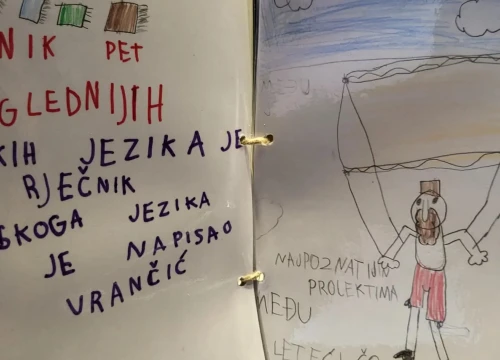 NIK PET
GLEDNIJIH
KIH JEZIKA JE
RJEČNIK
SKOGA JEZIKA
JE NAPISAO
VRANČIĆ
MEĐU
NAJPOZNATIJIM
PROLEKTIMA
MEĐU
LETEĆI ČO